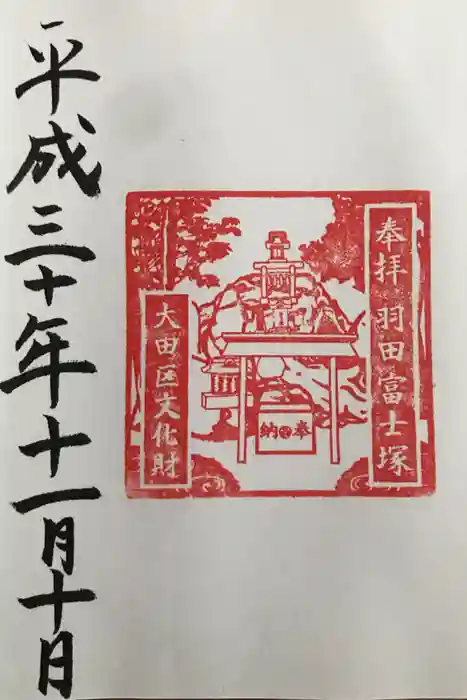 奉拝 羽田富士塚
大田区文化財
奉納
平成三十年十一月十日